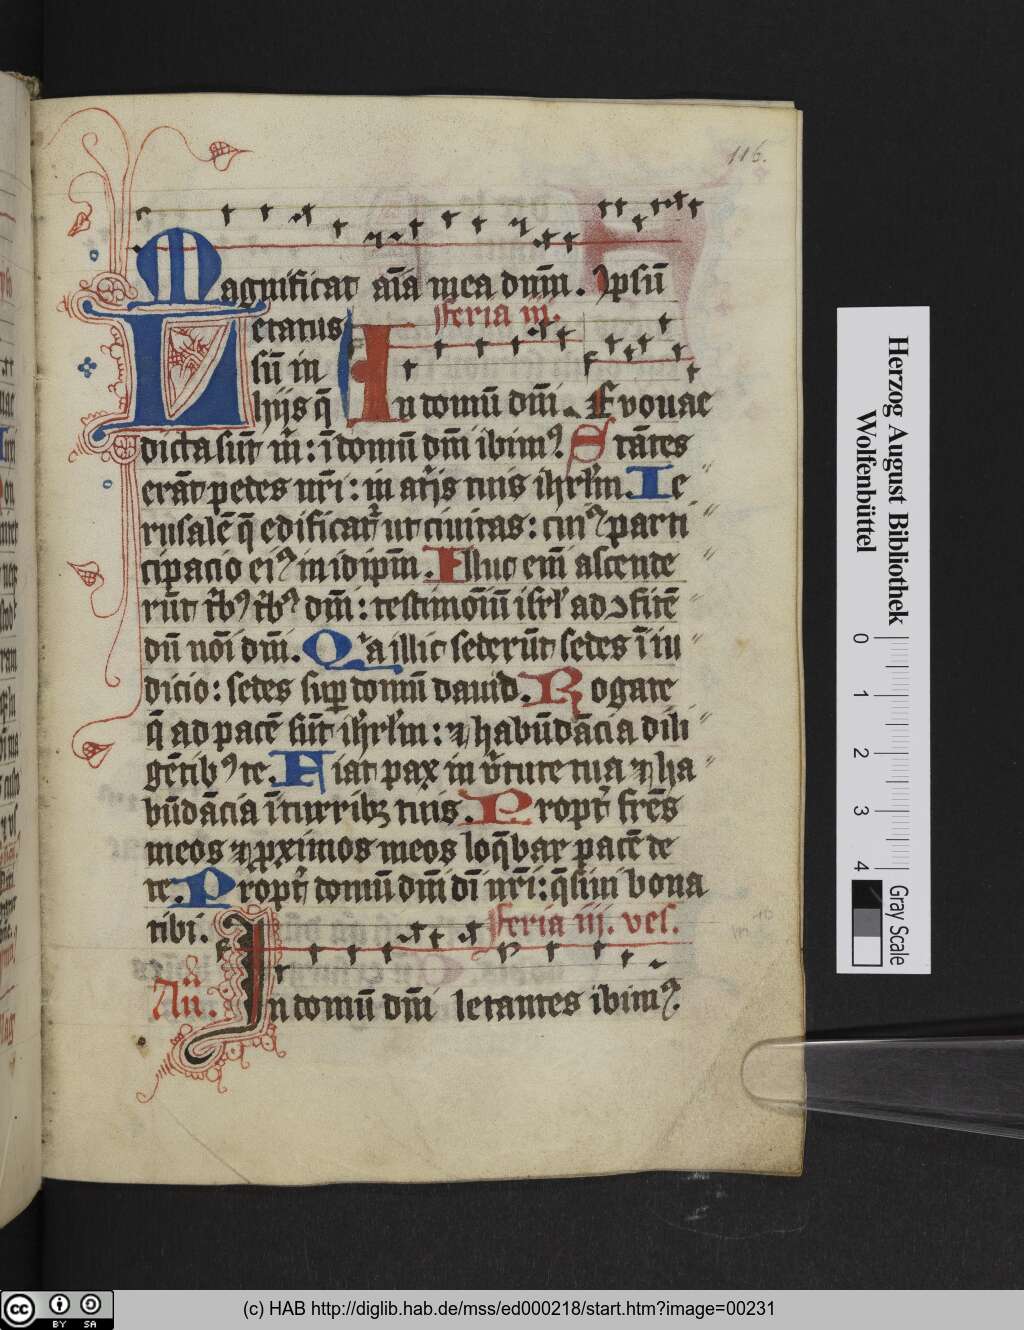 116.
Magnificat aīa mea dn̄m. Ipsū
feria iij.
Letatus
sū in
hijs q̄
In domū dm̄i. Evouae
dicta sūt m̄: ī domū dm̄ ibimꝰ. Stātes
erāt pedes nr̄i: in atrijs tuis ihrl̄m. Ie
rusalē q̄ edificat᷑ ut ciuitas: cuiꝰ parti
cipacio eiꝰ in idip̄m. Illuc em̄ ascende
rūt tb̄ꝰ tb̄ꝰ dm̄i: testimōiū isrl̄ ad ꝯfitē
dū nōi dm̄i. Qͥa illic sederūt sedes ī iu
dicio: sedes suꝑ domū dauid. Rogate
q̄ ad pacē sūt ihrl̄m: ⁊ habūdācia dili
gētibꝰ te. Fiat pax in v̄tute tua ⁊ ha
būdācia ī turribꝫ tuis. Propt̄ fr̄es
meos ⁊ ꝓximos meos loq̄bar pacē de
te. Propt̄ domū dm̄ dī nr̄i: q̄siui bona
tibi.
feria iij. ves.
An̄.
In domū dm̄i letantes ibimꝰ.
Herzog August Bibliothek
Wolfenbüttel
0 1 2 3 4
Gray Scale
cc BY SA
(c) HAB http://diglib.hab.de/mss/ed000218/start.htm?image=00231